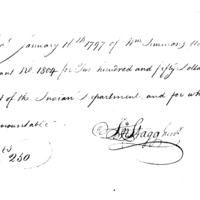 January 16th 1797 of Wm Simmons
No 1804 for Two hundred and fifty Dolla
t of the Indian Department, and for wh
accountable.
250